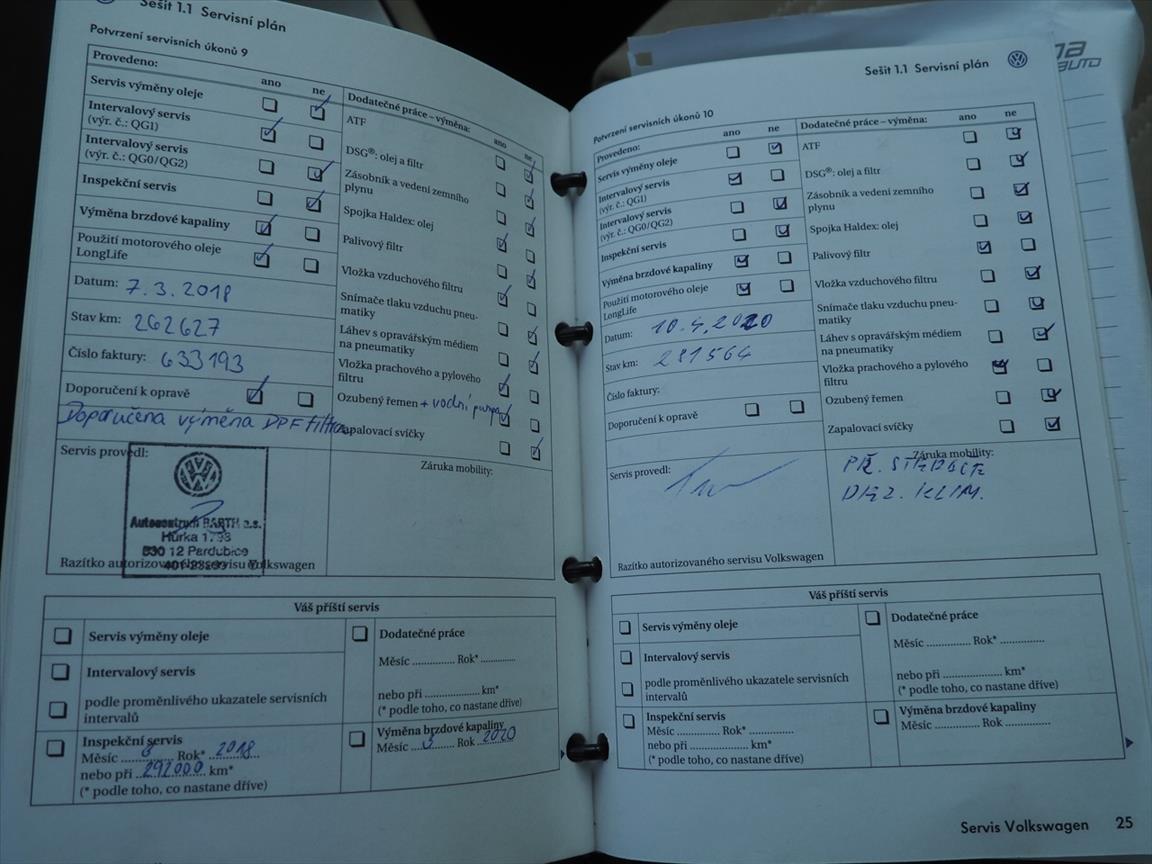 Sešit 1.1 Servisní plán
Potvrzení servisních úkonů 9
Provedeno:
ano ne
Servis výměny oleje
Intervalový servis
(výr. č.: QG1)
Intervalový servis
(výr. č.: QG0/QG2)
Inspekční servis
Výměna brzdové kapaliny
Použití motorového oleje
LongLife
Datum: 7.3.2018
Stav km: 262627
Číslo faktury: 633193
Doporučení k opravě
Doporučena výměna DPF filtru
Servis provedl:
Autocentrum BARTH a.s.
Hůrka 1798
530 12 Pardubice
Razítko autorizovaného servisu Volkswagen
Dodatečné práce – výměna:
ano ne
ATF
DSG®: olej a filtr
Zásobník a vedení zemního
plynu
Spojka Haldex: olej
Palivový filtr
Vložka vzduchového filtru
Snímače tlaku vzduchu pneu-
matiky
Láhev s opravářským médiem
na pneumatiky
Vložka prachového a pylového
filtru
Ozubený řemen + vodní pumpa
Zapalovací svíčky
Záruka mobility:
Váš příští servis
Servis výměny oleje
Intervalový servis
podle proměnlivého ukazatele servisních
intervalů
Inspekční servis
Měsíc 8 Rok* 2018
nebo při 292000 km*
(* podle toho, co nastane dříve)
Dodatečné práce
Měsíc .............. Rok* ..............
nebo při .................... km*
(* podle toho, co nastane dříve)
Výměna brzdové kapaliny
Měsíc 3 Rok 2020
na
AUTO
Sešit 1.1 Servisní plán
Potvrzení servisních úkonů 10
Provedeno:
ano ne
Servis výměny oleje
Intervalový servis
(výr. č.: QG1)
Intervalový servis
(výr. č.: QG0/QG2)
Inspekční servis
Výměna brzdové kapaliny
Použití motorového oleje
LongLife
Datum: 10.4.2020
Stav km: 281564
Číslo faktury:
Doporučení k opravě
Servis provedl:
Razítko autorizovaného servisu Volkswagen
Dodatečné práce – výměna:
ano ne
ATF
DSG®: olej a filtr
Zásobník a vedení zemního
plynu
Spojka Haldex: olej
Palivový filtr
Vložka vzduchového filtru
Snímače tlaku vzduchu pneu-
matiky
Láhev s opravářským médiem
na pneumatiky
Vložka prachového a pylového
filtru
Ozubený řemen
Zapalovací svíčky
Záruka mobility:
PŘ. STĚRAČE
DEZ. KLIM.
Váš příští servis
Servis výměny oleje
Intervalový servis
podle proměnlivého ukazatele servisních
intervalů
Inspekční servis
Měsíc .............. Rok* ..............
nebo při .................... km*
(* podle toho, co nastane dříve)
Dodatečné práce
Měsíc .............. Rok* ..............
nebo při .................... km*
(* podle toho, co nastane dříve)
Výměna brzdové kapaliny
Měsíc .............. Rok ..............
Servis Volkswagen 25